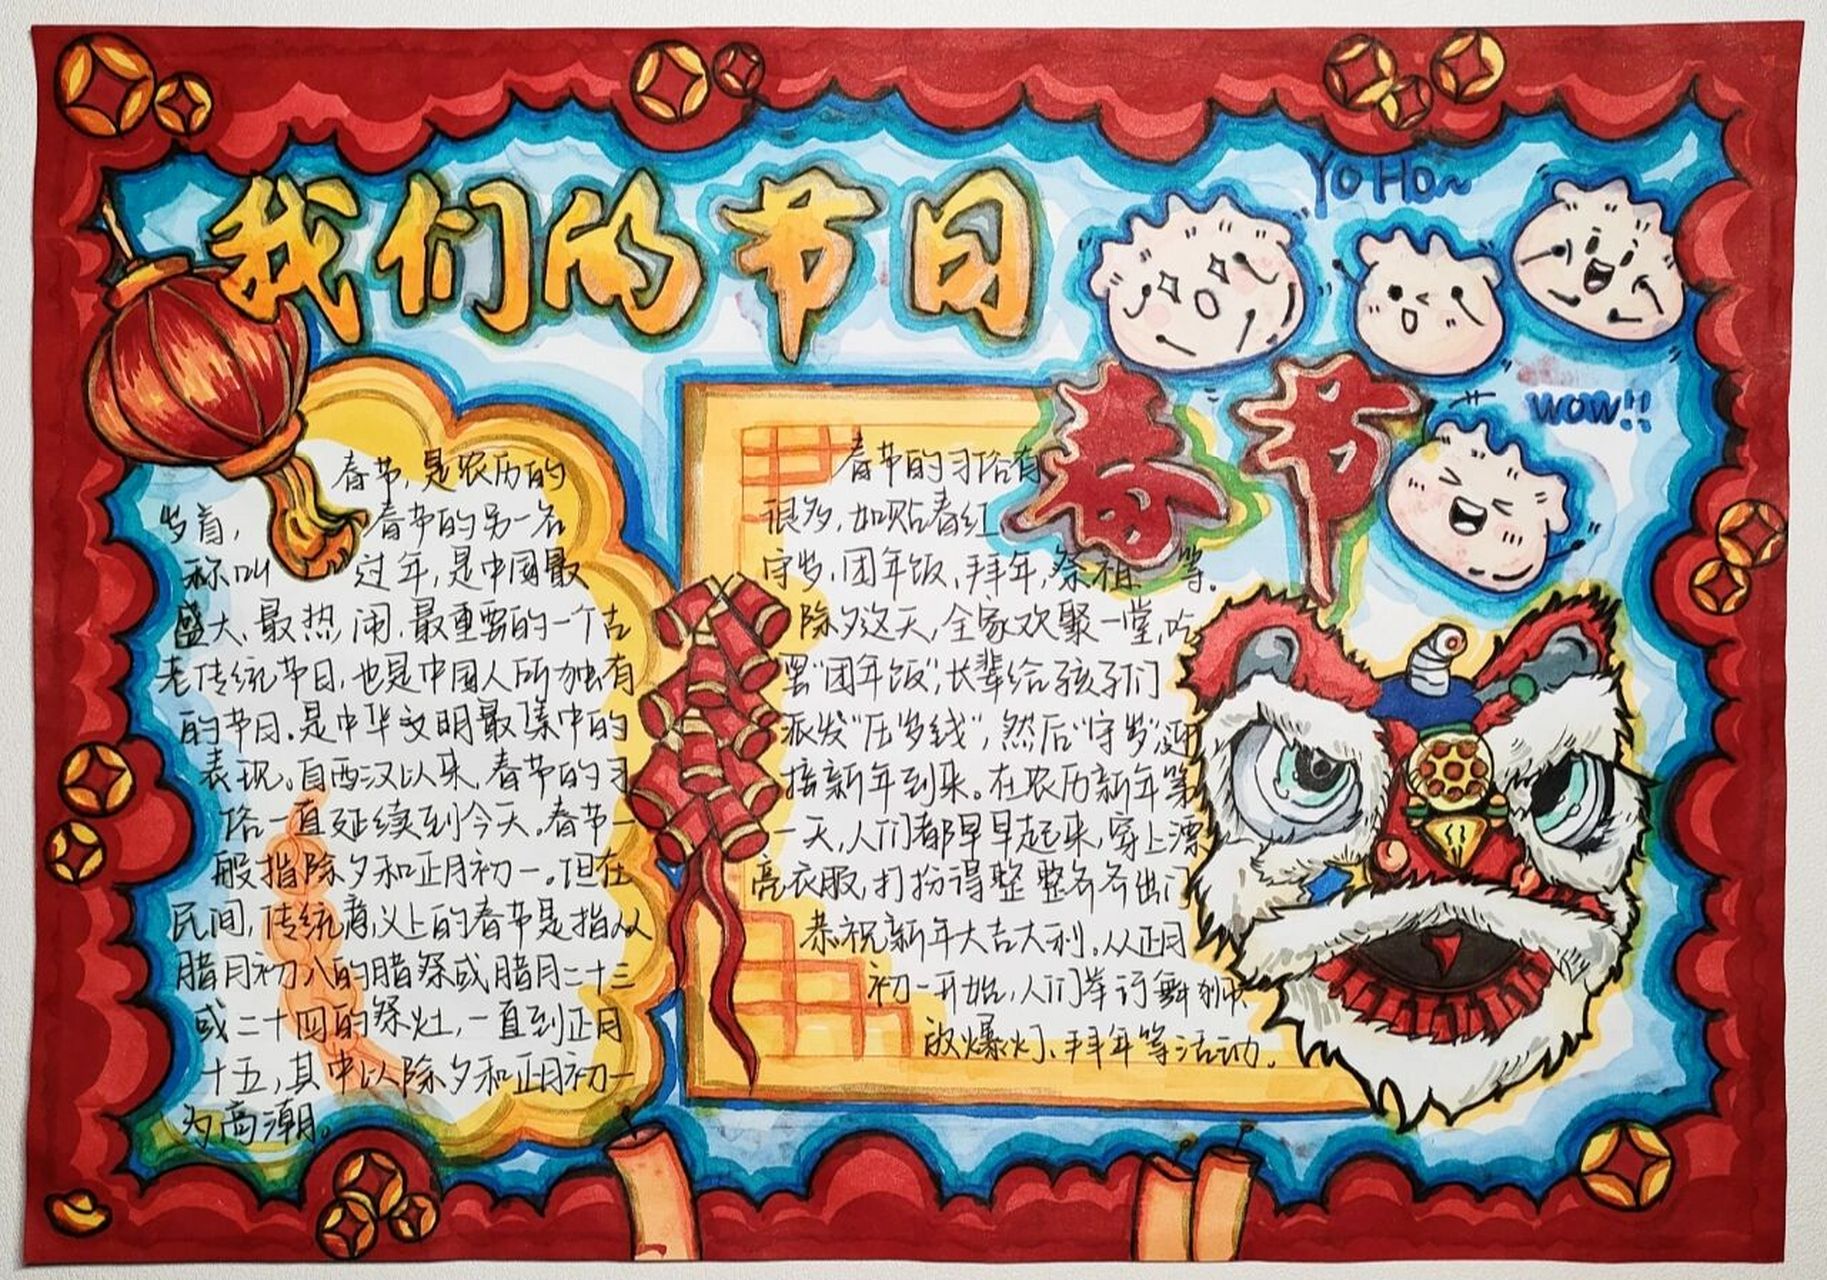 我们的节日
YoHo~
wow!!
春节
春节,是农历的
岁首, 春节的另一名
称叫 过年,是中国最
盛大、最热闹、最重要的一个古
老传统节日,也是中国人所独有
的节日。是中华文明最集中的
表现。自西汉以来,春节的习
俗一直延续到今天。春节一
般指除夕和正月初一。但在
民间,传统意义上的春节是指从
腊月初八的腊祭或腊月二十三
或二十四的祭灶,一直到正月
十五,其中以除夕和正月初一
为高潮。
春节的习俗有
很多,如贴春红
守岁,团年饭,拜年,祭祖 等。
除夕这天,全家欢聚一堂,吃
罢“团年饭”,长辈给孩子们
派发“压岁钱”,然后“守岁”迎
接新年到来。在农历新年第
一天,人们都早早起来,穿上漂
亮衣服,打扮得整整齐齐出门
恭祝新年大吉大利。从正月
初一开始,人们举行舞狮
放爆灯、拜年等活动。